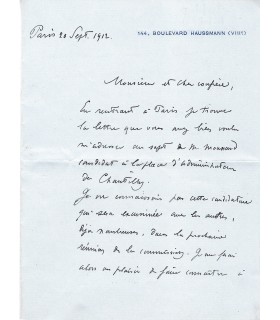 144, BOULEVARD HAUSSMANN (VIIIe)
Paris 20 Sept. 1912
Monsieur et cher confrère,
En rentrant à Paris je trouve
la lettre que vous avez bien voulu
m'adresser au sujet de M.
candidat à la place d'administrateur
de Chantilly.
Je ne connaissais pas cette candidature
qui sera examinée avec les autres,
déjà nombreuses, dans la prochaine
réunion de la commission. Je me ferai
alors un plaisir de faire connaître à